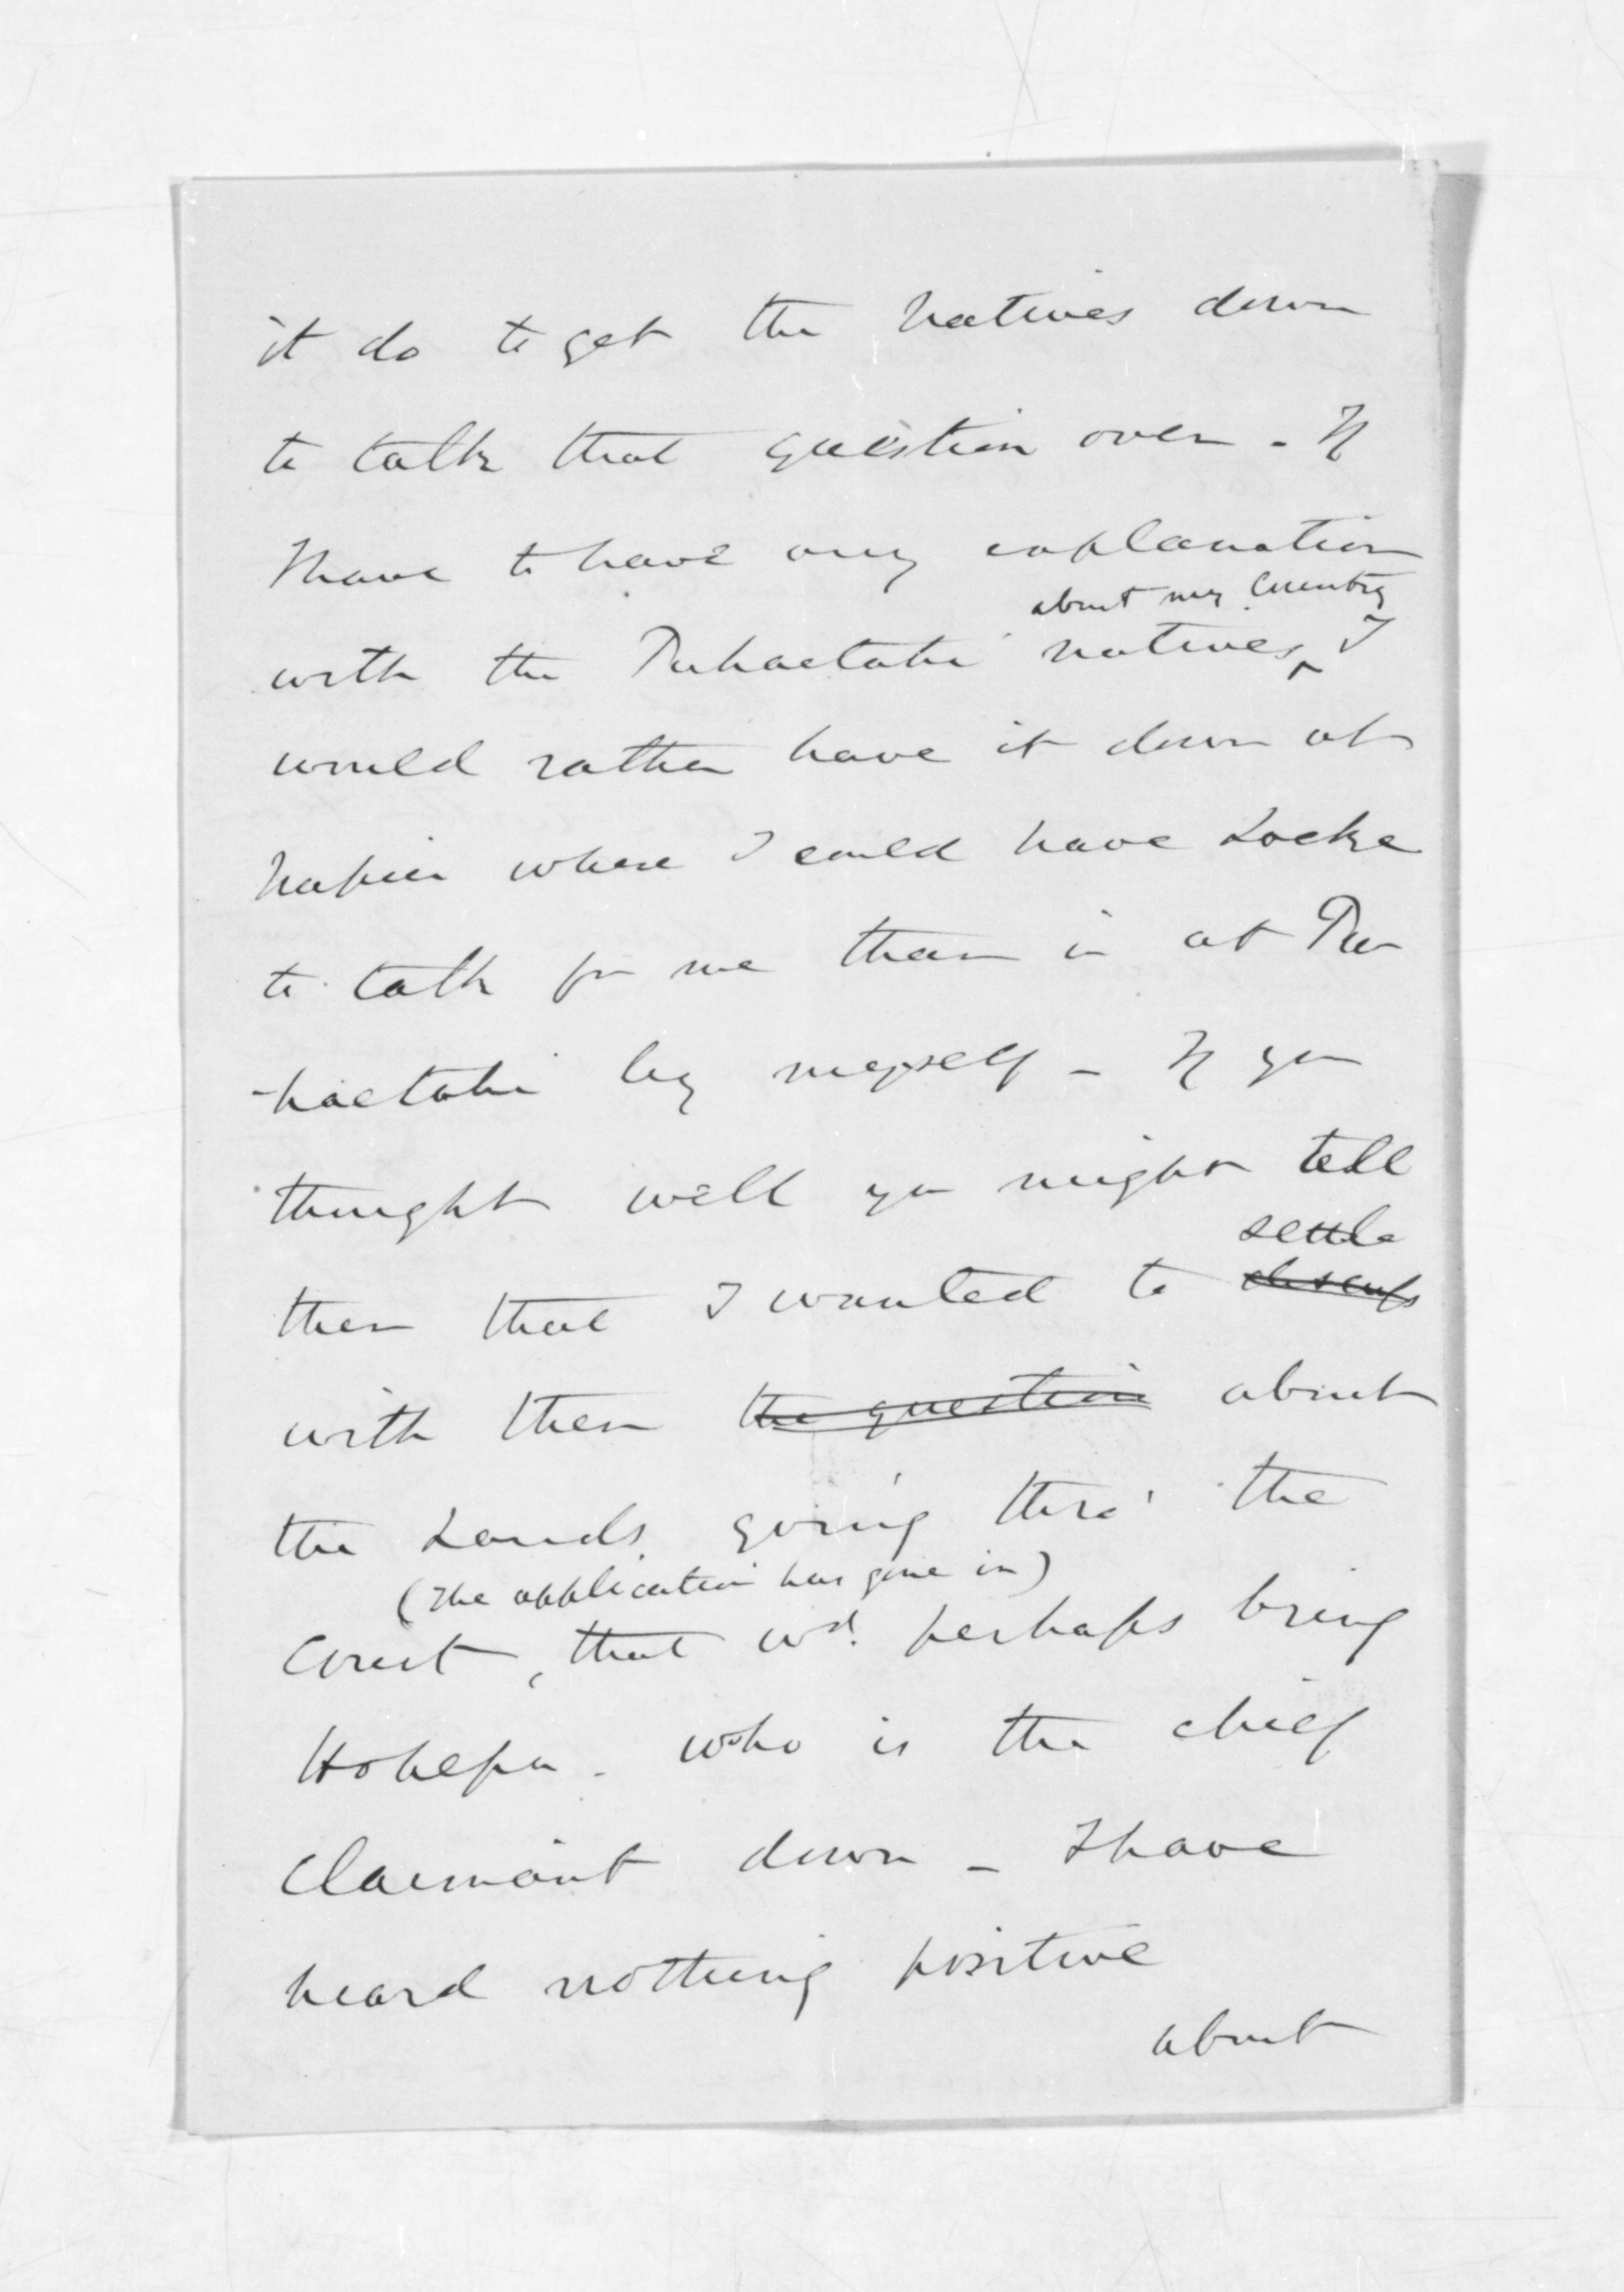 it do to get the Natives down
to talk that question over - If
I have to have any explanation
about my Country
with the Puhaetahi natives, I
would rather have it down at
Napier where I could have Locke
to talk for me than in at Pu
-haetahi by myself - If you
thought well you might tell
settle
them that I wanted to discuss
with them the question about
the Lands going thro' the
(The application has gone in)
Court, that wd. perhaps bring
Hohepa - who is the chief
Claimant down - I have
heard nothing positive
about